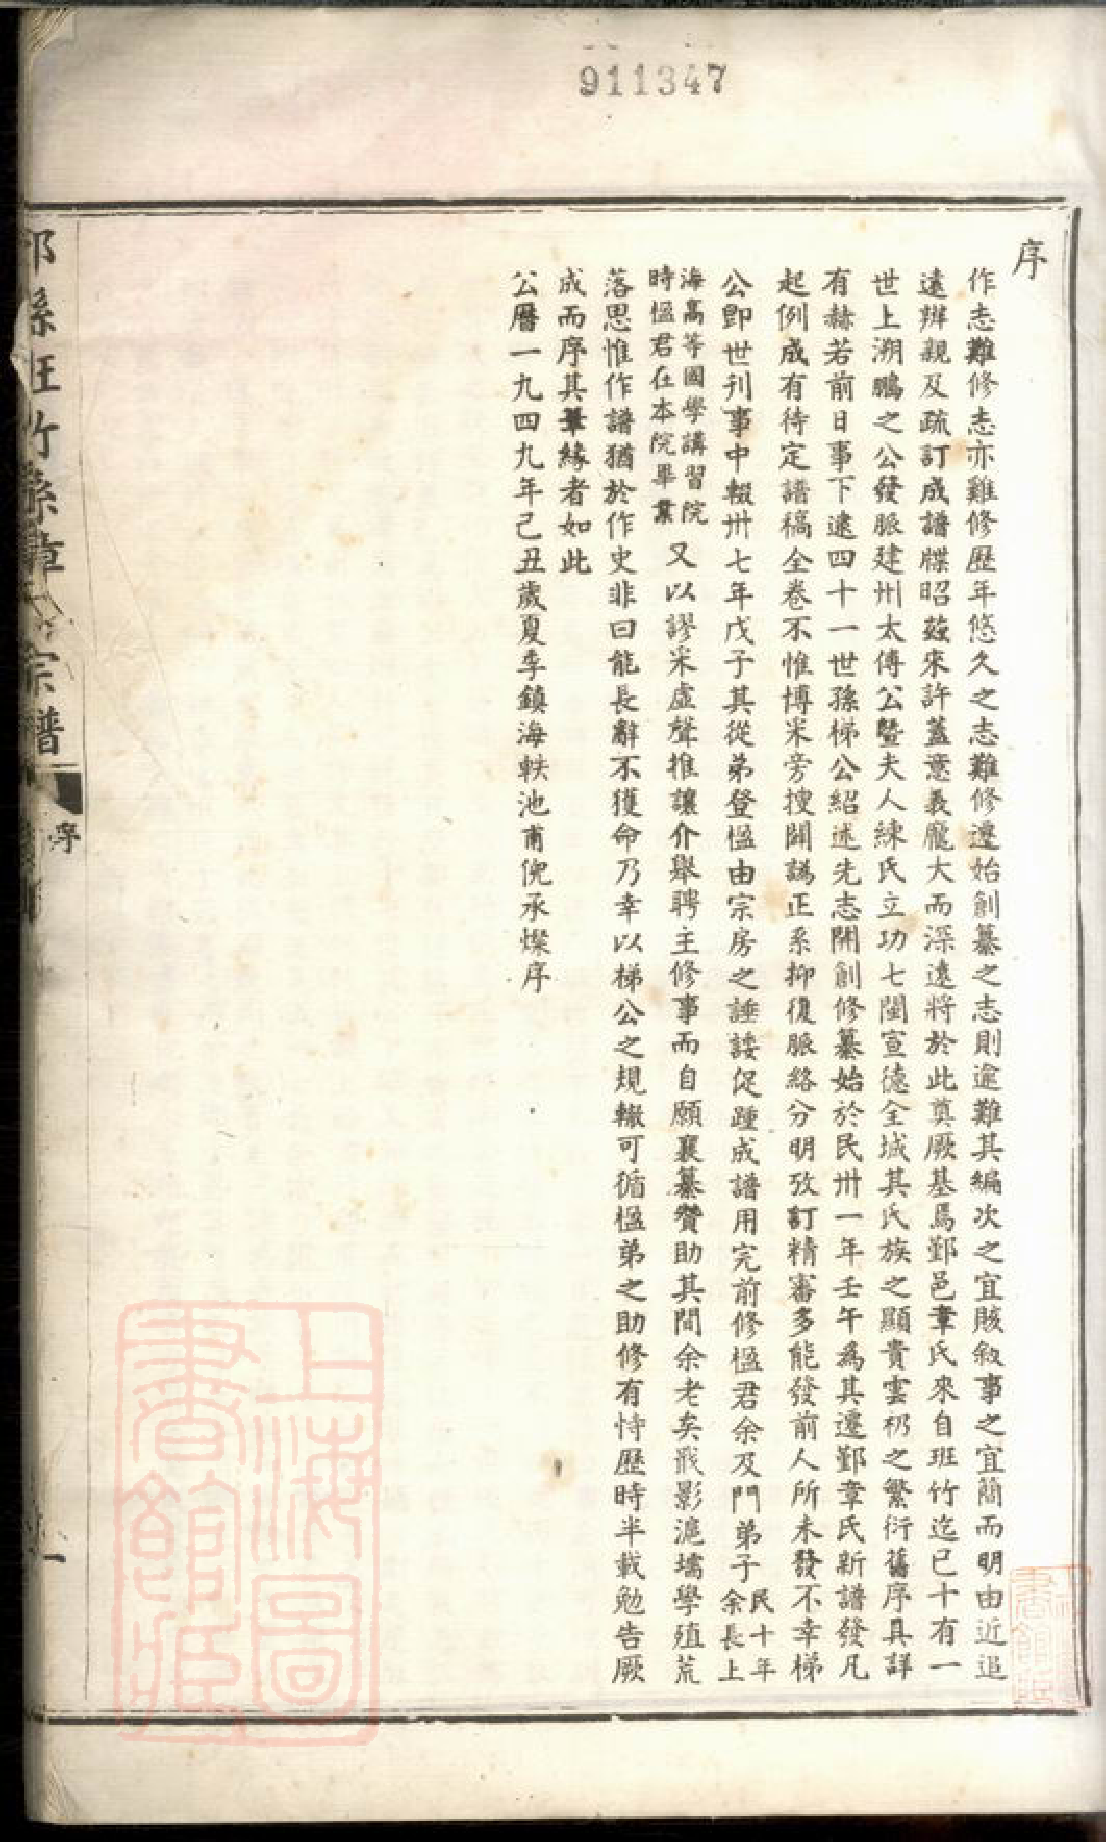 911347
序
作志難修志亦難修歷年悠久之志難修遷始創纂之志則逾難其編次之宜賅敘事之宜簡而明由近追
遠辨親及疏訂成譜牒昭茲來許蓋意義龐大而深遠將於此奠厥基焉鄞邑章氏來自班竹迄已十有一
世上溯鵬之公發脈建州太傅公暨夫人練氏立功七閩宣德全城其氏族之顯貴雲礽之繁衍舊序具詳
有赫若前日事下逮四十一世孫梯公紹述先志開創修纂始於民卅一年壬午為其遷鄞章氏新譜發凡
起例成有待定譜稿全卷不惟博采旁搜闢譌正系抑復脈絡分明攷訂精審多能發前人所未發不幸梯
公卽世刊事中輟卅七年戊子其從弟登楹由宗房之諈諉促踵成譜用完前修楹君余及門弟子
民十年
余長上
海高等國學講習院
時楹君在本院畢業
又以謬采虛聲推讓介舉聘主修事而自願襄纂贊助其間余老矣戢影滬壖學殖荒
落思惟作譜猶於作史非曰能長辭不獲命乃幸以梯公之規轍可循楹弟之助修有恃歷時半載勉告厥
成而序其緣者如此
公曆一九四九年己丑歲夏季鎮海軼池甫倪承燦序
班竹
章
宗譜
序
一
上海圖書館藏